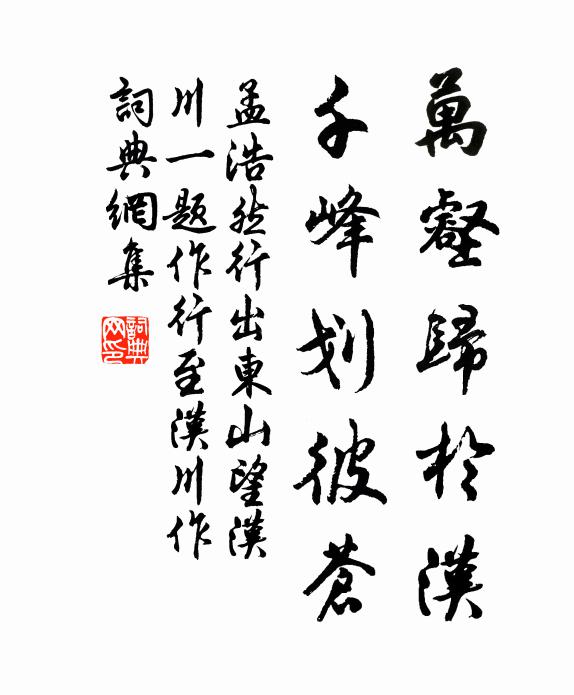 萬壑歸於漢
千峰划彼蒼
孟浩然行出東山望漢
川一題作行至漢川作
詞典網集
詞典網印